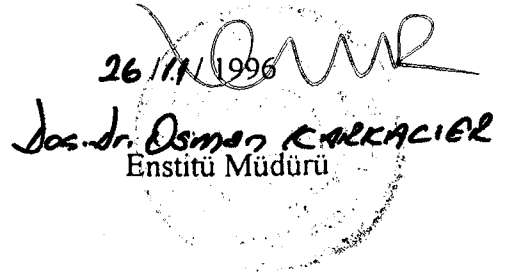 26/11/1996
Doç. Dr. Osman KARKACIER
Enstitü Müdürü